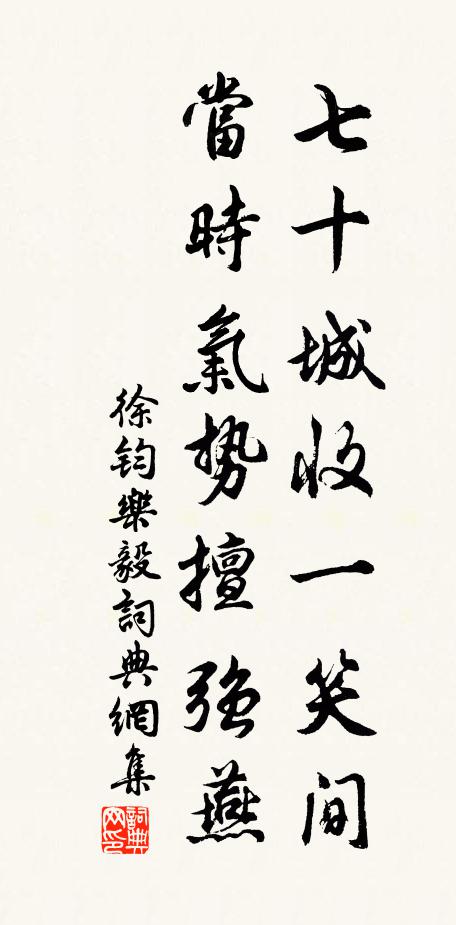 七十城收一笑間
當時氣勢擅強燕
徐鈞樂毅詞典網集
詞典網印